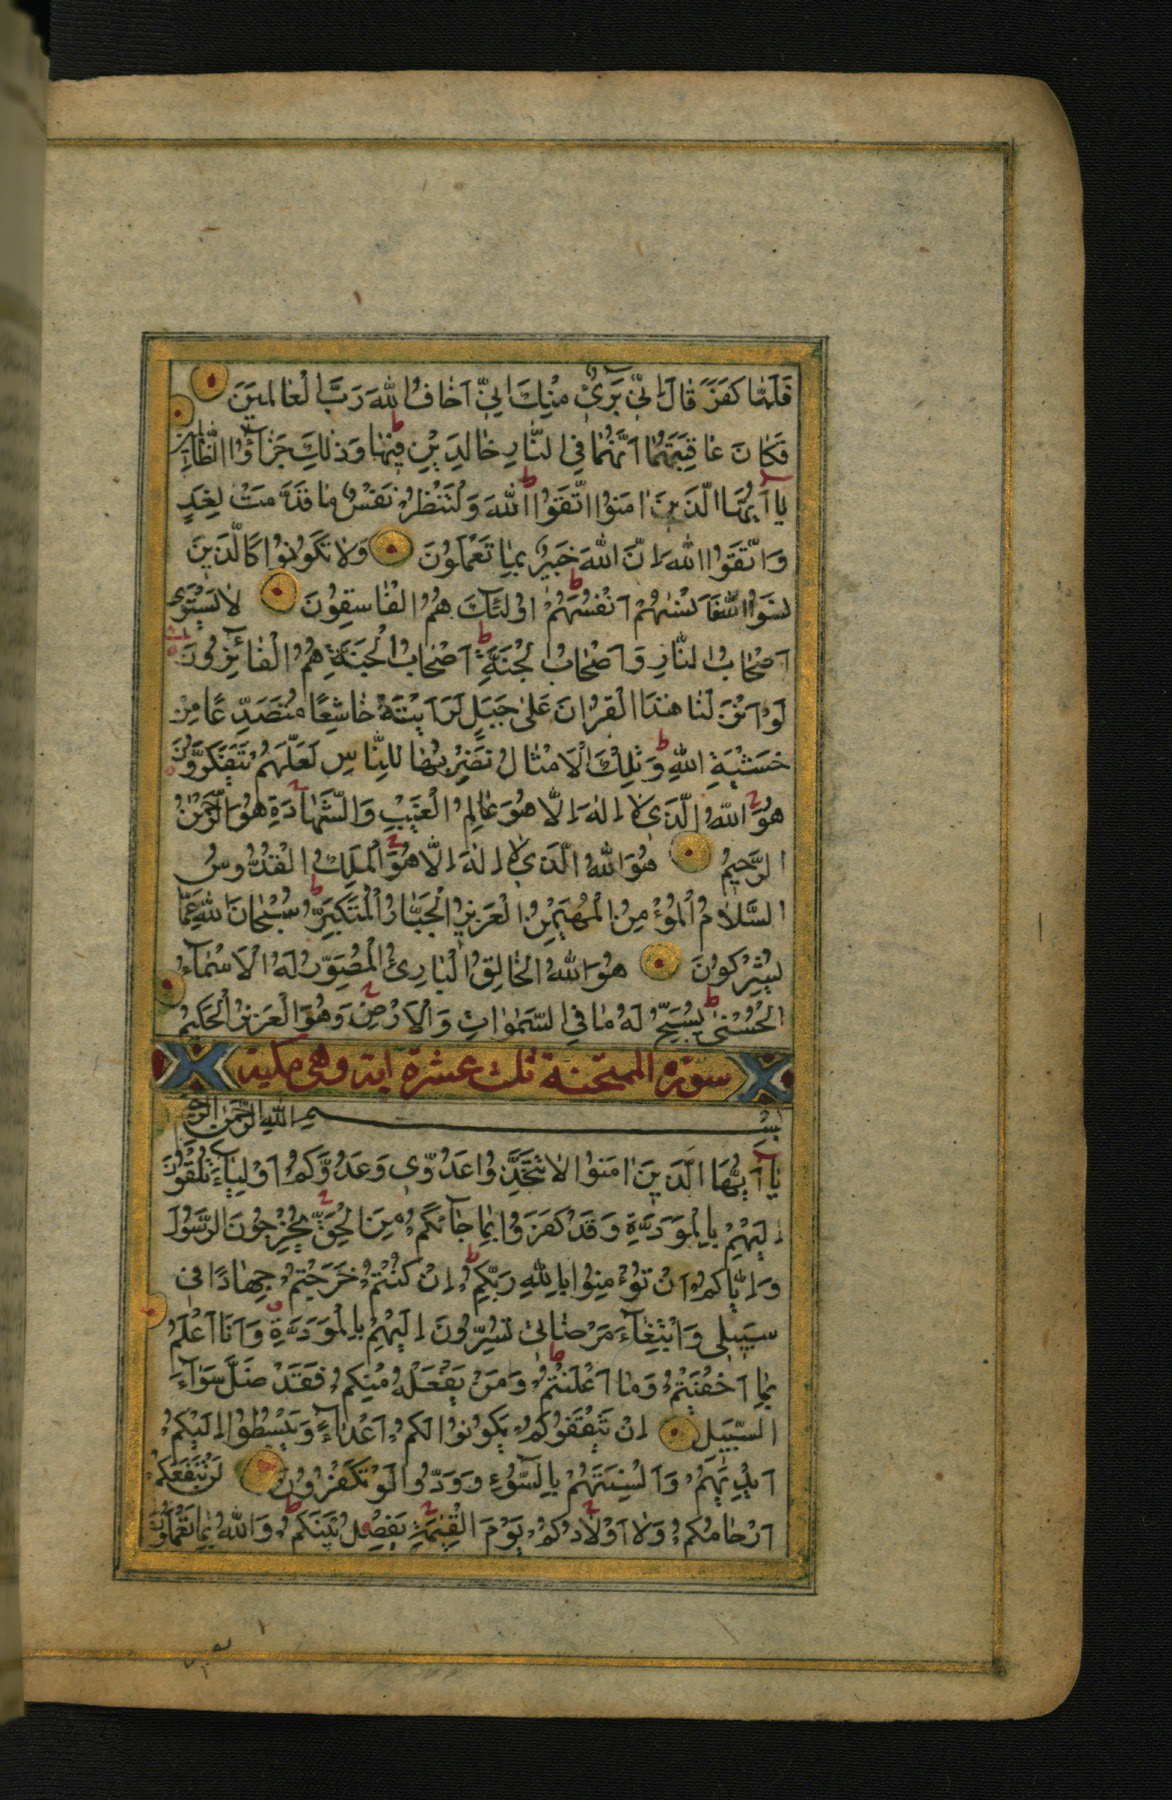 فَلَمَّا كَفَرَ قَالَ اِنِّي بَرِيٓءٌ مِنْكَ اِنِّي اَخَافُ اللهَ رَبَّ الْعَالَمِينَ
فَكَانَ عَاقِبَتَهُمَا اَنَّهُمَا فِي النَّارِ خَالِدَيْنِ فِيهَا وَذٰلِكَ جَزَآؤُا الظَّالِمِينَ
يَآ اَيُّهَا الَّذِينَ اٰمَنُوا اتَّقُوا اللهَ وَلْتَنْظُرْ نَفْسٌ مَا قَدَّمَتْ لِغَدٍ
وَاتَّقُوا اللهَ اِنَّ اللهَ خَبِيرٌ بِمَا تَعْمَلُونَ وَلَا تَكُونُوا كَالَّذِينَ
نَسُوا اللهَ فَاَنْسٰهُمْ اَنْفُسَهُمْ اُولٰئِكَ هُمُ الْفَاسِقُونَ لَا يَسْتَوِي
اَصْحَابُ النَّارِ وَاَصْحَابُ الْجَنَّةِ اَصْحَابُ الْجَنَّةِ هُمُ الْفَائِزُونَ
لَوْ اَنْزَلْنَا هٰذَا الْقُرْاٰنَ عَلٰى جَبَلٍ لَرَاَيْتَهُ خَاشِعًا مُتَصَدِّعًا مِنْ
خَشْيَةِ اللهِ وَتِلْكَ الْاَمْثَالُ نَضْرِبُهَا لِلنَّاسِ لَعَلَّهُمْ يَتَفَكَّرُونَ
هُوَ اللهُ الَّذِي لَا اِلٰهَ اِلَّا هُوَ عَالِمُ الْغَيْبِ وَالشَّهَادَةِ هُوَ الرَّحْمٰنُ
الرَّحِيمُ هُوَ اللهُ الَّذِي لَا اِلٰهَ اِلَّا هُوَ الْمَلِكُ الْقُدُّوسُ
السَّلَامُ الْمُؤْمِنُ الْمُهَيْمِنُ الْعَزِيزُ الْجَبَّارُ الْمُتَكَبِّرُ سُبْحَانَ اللهِ عَمَّا
يُشْرِكُونَ هُوَ اللهُ الْخَالِقُ الْبَارِئُ الْمُصَوِّرُ لَهُ الْاَسْمَآءُ
الْحُسْنٰى يُسَبِّحُ لَهُ مَا فِي السَّمٰوَاتِ وَالْاَرْضِ وَهُوَ الْعَزِيزُ الْحَكِيمُ
سورة الممتحنة ثلث عشرة اية وهى مكية
بِسْمِ اللهِ الرَّحْمٰنِ الرَّحِيمِ
يَآ اَيُّهَا الَّذِينَ اٰمَنُوا لَا تَتَّخِذُوا عَدُوِّي وَعَدُوَّكُمْ اَوْلِيَآءَ تُلْقُونَ
اِلَيْهِمْ بِالْمَوَدَّةِ وَقَدْ كَفَرُوا بِمَا جَآئَكُمْ مِنَ الْحَقِّ يُخْرِجُونَ الرَّسُولَ
وَاِيَّاكُمْ اَنْ تُؤْمِنُوا بِاللهِ رَبِّكُمْ اِنْ كُنْتُمْ خَرَجْتُمْ جِهَادًا فِي
سَبِيلِي وَابْتِغَآءَ مَرْضَاتِي تُسِرُّونَ اِلَيْهِمْ بِالْمَوَدَّةِ وَاَنَا اَعْلَمُ
بِمَا اَخْفَيْتُمْ وَمَا اَعْلَنْتُمْ وَمَنْ يَفْعَلْهُ مِنْكُمْ فَقَدْ ضَلَّ سَوَآءَ
السَّبِيلِ اِنْ يَثْقَفُوكُمْ يَكُونُوا لَكُمْ اَعْدَآءً وَيَبْسُطُوا اِلَيْكُمْ
اَيْدِيَهُمْ وَاَلْسِنَتَهُمْ بِالسُّوٓءِ وَوَدُّوا لَوْ تَكْفُرُونَ لَنْ تَنْفَعَكُمْ
اَرْحَامُكُمْ وَلَا اَوْلَادُكُمْ يَوْمَ الْقِيٰمَةِ يَفْصِلُ بَيْنَكُمْ وَاللهُ بِمَا تَعْمَلُونَ